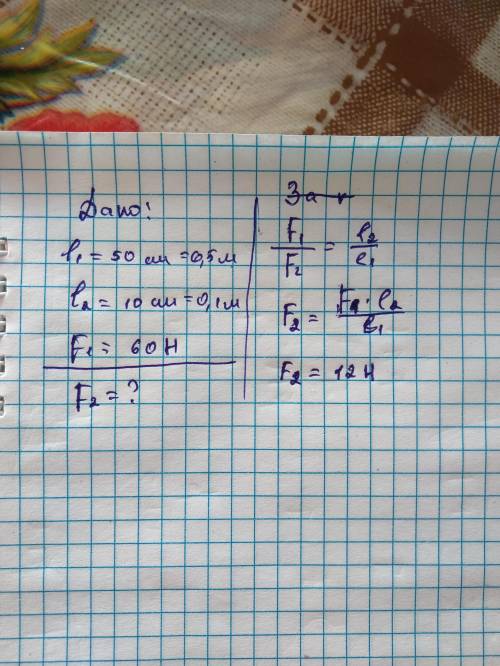 Дано:
l₁ = 50 см = 0,5 м
l₂ = 10 см = 0,1 м
F₁ = 60 Н
F₂ = ?
F₁/F₂ = l₂/l₁
F₂ = F₁·l₂/l₁
F₂ = 12 Н